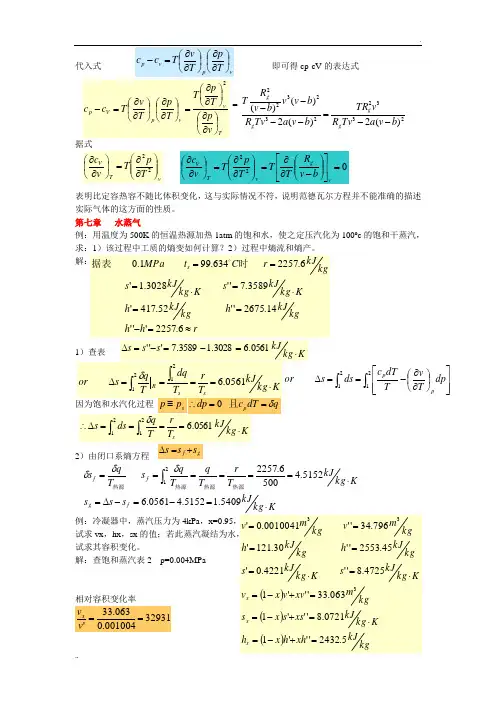 代入式 c_p − c_v = T(∂v/∂T)_p (∂p/∂T)_v 即可得 cp-cV 的表达式
c_p − c_V = T(∂v/∂T)_p (∂p/∂T)_v = T(∂p/∂T)_v^2 / (∂p/∂v)_T = T R_g^2/(v−b)^2 v^3(v−b)^2 / (R_g Tv^3 − 2a(v−b)^2) = TR_g^2 v^3 / (R_g Tv^3 − 2a(v−b)^2)
据式
(∂c_V/∂v)_T = T(∂²p/∂T²)_v (∂c_V/∂v)_T = T(∂²p/∂T²)_v = T[∂/∂T (R_g/(v−b))]_v = 0
表明比定容热容不随比体积变化,这与实际情况不符,说明范德瓦尔方程并不能准确的描述
实际气体的这方面的性质。
第七章 水蒸气
例:用温度为 500K 的恒温热源加热 1atm 的饱和水,使之定压汽化为 100ºc 的饱和干蒸汽,
求:1)该过程中工质的熵变如何计算?2)过程中熵流和熵产。
解:据表 0.1MPa t_s = 99.634°C时 r = 2257.6 kJ/kg
s' = 1.3028 kJ/kg·K s'' = 7.3589 kJ/kg·K
h' = 417.52 kJ/kg h'' = 2675.14 kJ/kg
h''−h' = 2257.6 ≈ r
1)查表 Δs = s''−s' = 7.3589 − 1.3028 = 6.0561 kJ/kg·K
or Δs = ∫_1^2 δq/T|_R = ∫_1^2 dq / T_s = r/T_s = 6.0561 kJ/kg·K or Δs = ∫_1^2 ds = ∫_1^2 [c_p dT/T − (∂v/∂T)_p dp]
因为饱和水汽化过程 p ≡ p_s ∴dp = 0 且c_p dT = δq
∴Δs = ∫_1^2 ds = ∫_1^2 δq/T = r/T_s = 6.0561 kJ/kg·K
2)由闭口系熵方程 Δs = s_f + s_g
δs_f = δq/T_热源 s_f = ∫_1^2 δq/T_热源 = q/T_热源 = r/T_热源 = 2257.6/500 = 4.5152 kJ/kg·K
s_g = Δs − s_f = 6.0561 − 4.5152 = 1.5409 kJ/kg·K
例:冷凝器中,蒸汽压力为 4kPa,x=0.95,
试求 vx,hx,sx 的值;若此蒸汽凝结为水,
试求其容积变化。
解:查饱和蒸汽表 2 p=0.004MPa
v' = 0.0010041 m³/kg v'' = 34.796 m³/kg
h' = 121.30 kJ/kg h'' = 2553.45 kJ/kg
s' = 0.4221 kJ/kg·K s'' = 8.4725 kJ/kg·K
v_x = (1−x)v'+xv'' = 33.063 m³/kg
s_x = (1−x)s'+xs'' = 8.0721 kJ/kg·K
h_x = (1−x)h'+xh'' = 2432.5 kJ/kg
相对容积变化率
v_x/v' = 33.063/0.001004 = 32931